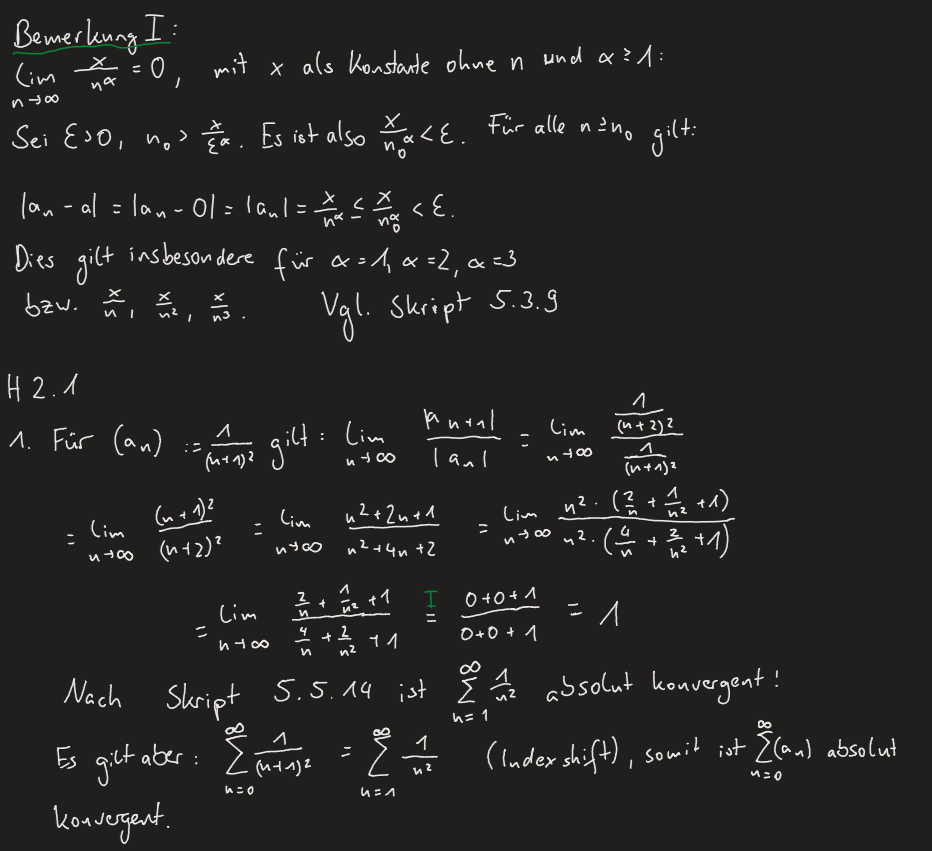 Bemerkung I:
lim_{n→∞} x/n^α = 0, mit x als Konstante ohne n und α ≥ 1:
Sei ε>0, n₀ > x/ε^α. Es ist also x/n₀^α < ε. Für alle n ≥ n₀ gilt:
|aₙ - a| = |aₙ - 0| = |aₙ| = x/n^α ≤ x/n₀^α < ε.
Dies gilt insbesondere für α = 1, α = 2, α = 3
bzw. x/n, x/n², x/n³. Vgl. Skript 5.3.9
H 2.1
1. Für (aₙ) := 1/(n+1)² gilt: lim_{n→∞} |aₙ₊₁|/|aₙ| = lim_{n→∞} (1/(n+2)²)/(1/(n+1)²)
= lim_{n→∞} (n+1)²/(n+2)² = lim_{n→∞} (n²+2n+1)/(n²+4n+2) = lim_{n→∞} (n²·(2/n + 1/n² + 1))/(n²·(4/n + 2/n² + 1))
= lim_{n→∞} (2/n + 1/n² + 1)/(4/n + 2/n² + 1) =^I (0+0+1)/(0+0+1) = 1
Nach Skript 5.5.14 ist ∑_{n=1}^∞ 1/n² absolut konvergent!
Es gilt aber: ∑_{n=0}^∞ 1/(n+1)² = ∑_{n=1}^∞ 1/n² (Indexshift), somit ist ∑_{n=0}^∞ (aₙ) absolut
konvergent.